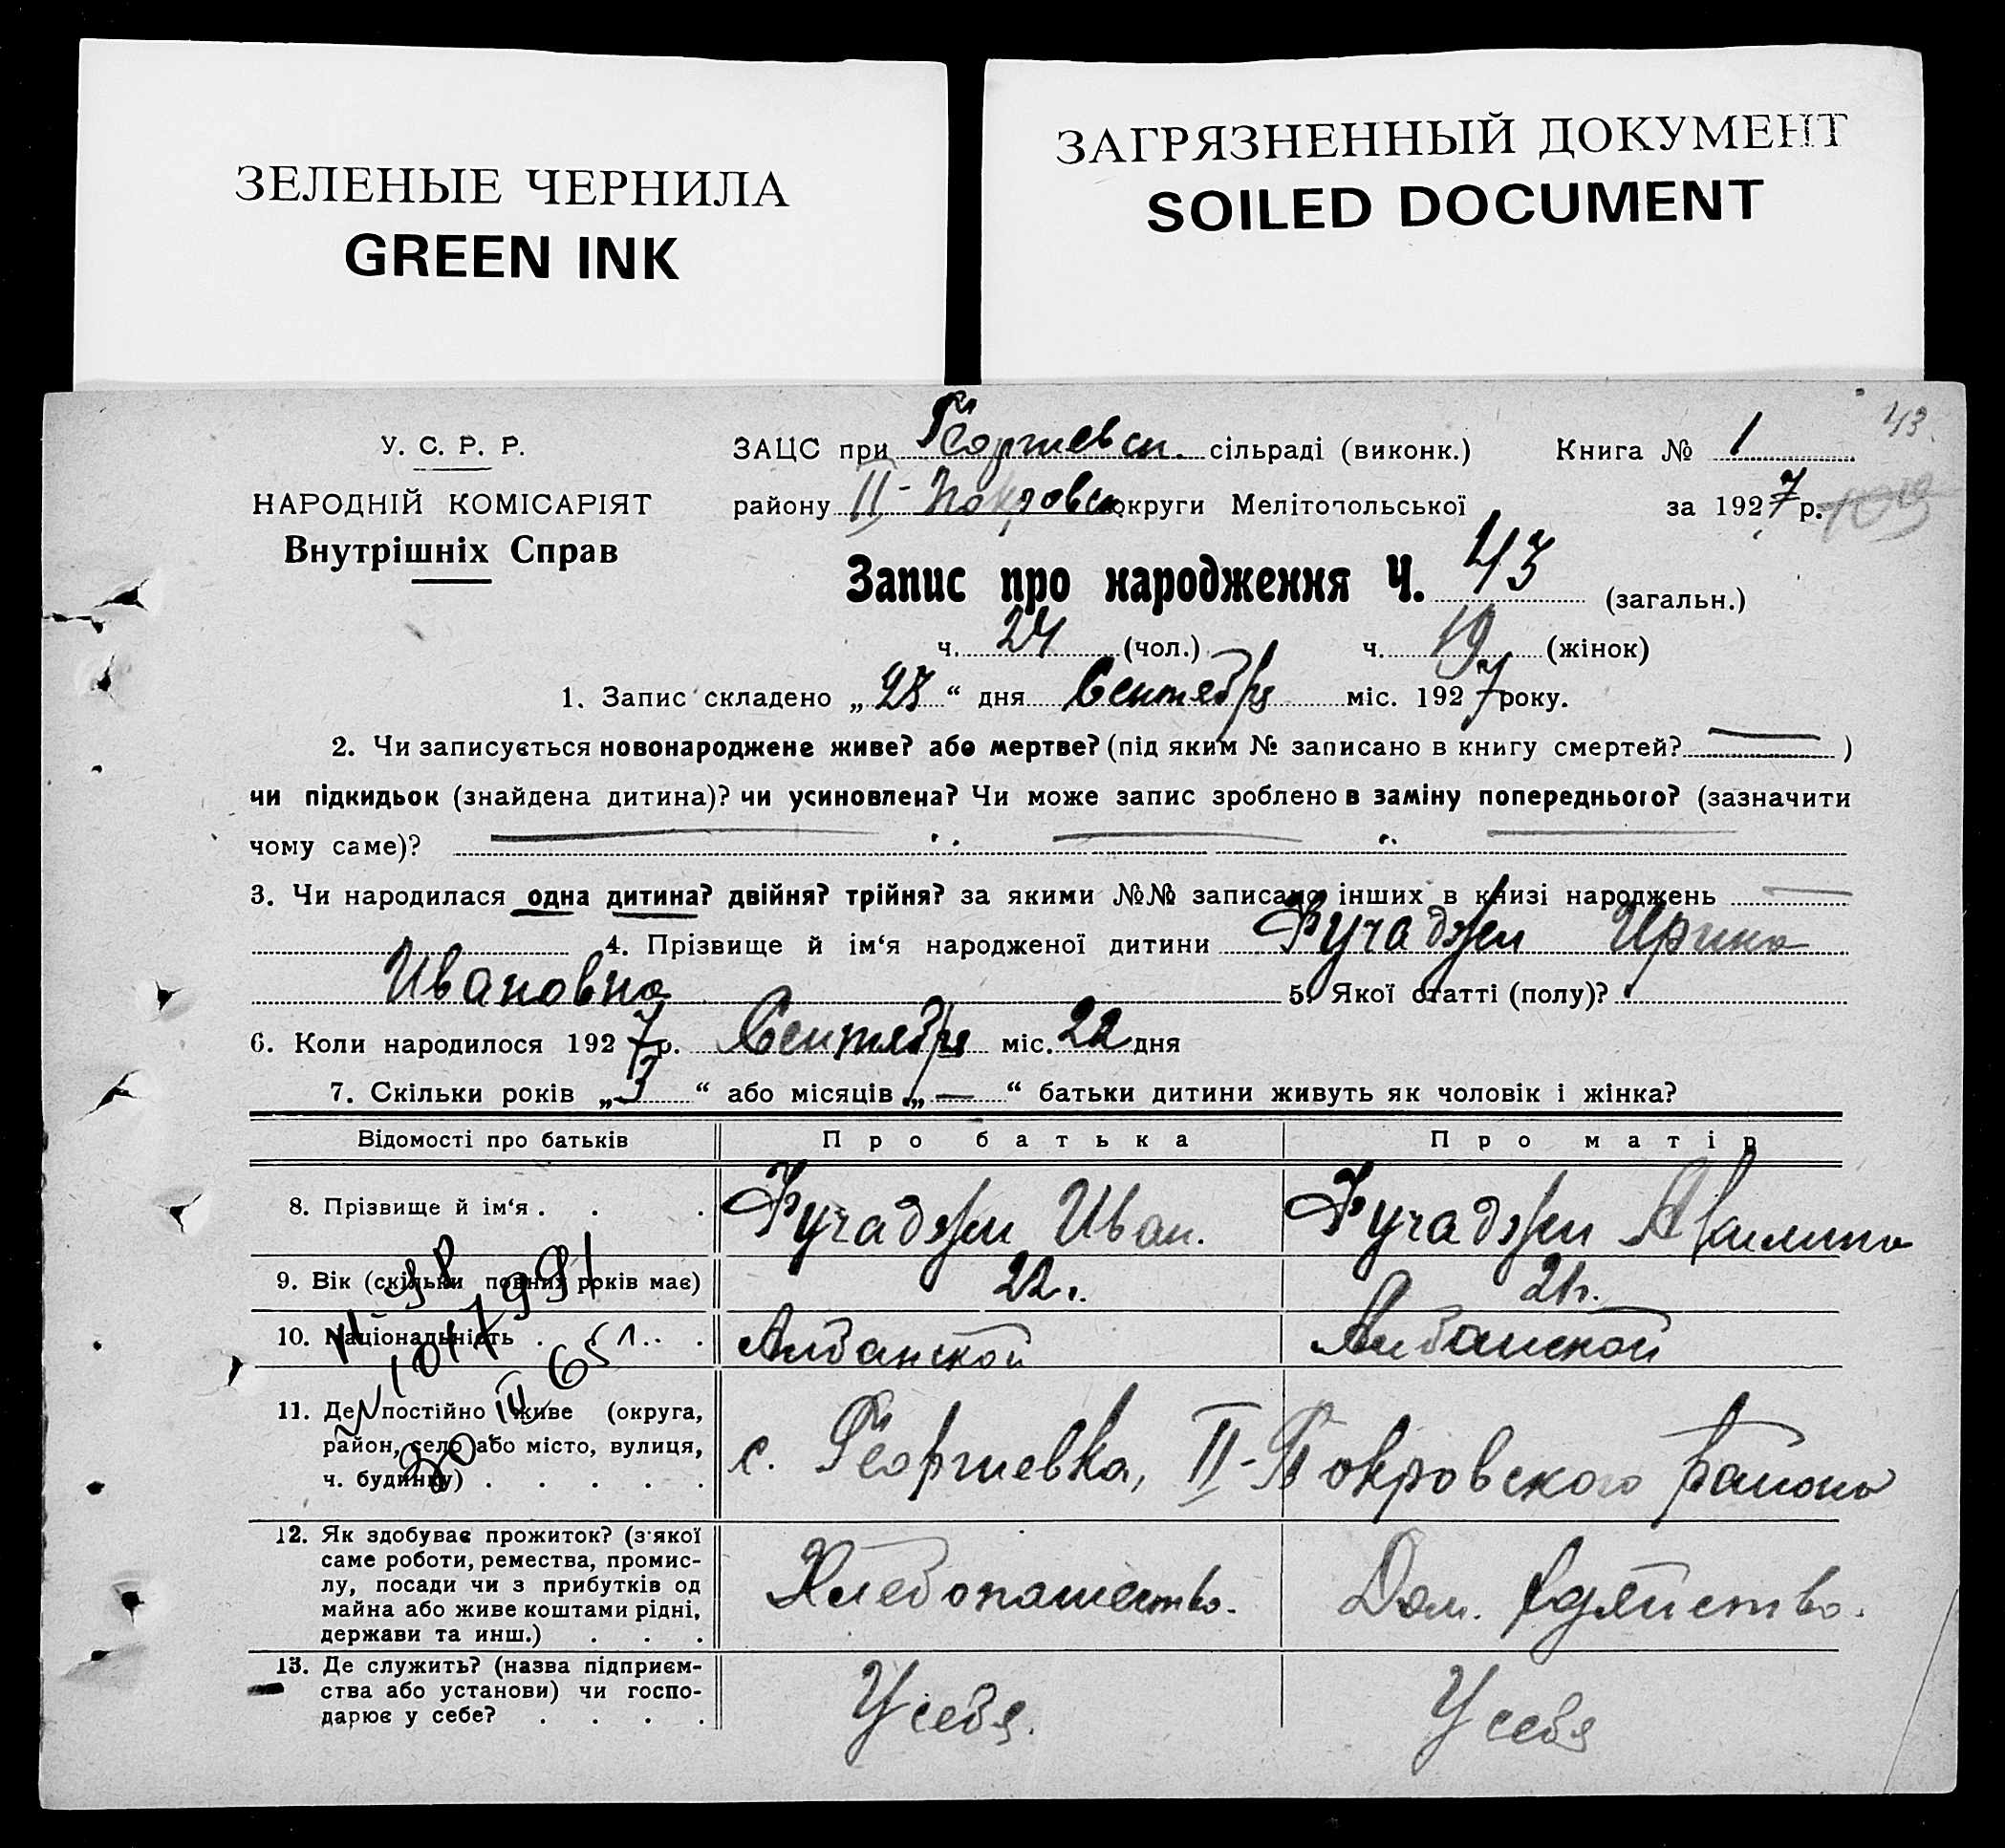 ЗЕЛЕНЫЕ ЧЕРНИЛА
GREEN INK
ЗАГРЯЗНЕННЫЙ ДОКУМЕНТ
SOILED DOCUMENT
43
У. С. Р. Р.
НАРОДНІЙ КОМІСАРІЯТ
Внутрішніх Справ
ЗАЦС при Георгиевск. сільраді (виконк.) Книга № 1
району II-Покровск округи Мелітопольської за 1927 р.
Запис про народження Ч. 43 (загальн.)
ч. 24 (чол.) ч. 19 (жінок)
1. Запис складено „27“ дня Сентября міс. 1927 року.
2. Чи записується новонароджене живе? або мертве? (під яким № записано в книгу смертей? — )
чи підкидьок (знайдена дитина)? чи усиновлена? Чи може запис зроблено в заміну попереднього? (зазначити
чому саме)?
3. Чи народилася одна дитина? двійня? трійня? за якими №№ записано інших в книзі народжень —
4. Прізвище й ім‘я народженої дитини Фучаджи Ирина
Ивановна 5. Якої статті (полу)?
6. Коли народилося 1927 р. Сентября міс. 22 дня
7. Скільки років „3“ або місяців „—“ батьки дитини живуть як чоловік і жінка?
Відомості про батьків Про батька Про матір
8. Прізвище й ім‘я . . . Фучаджи Иван. Фучаджи
9. Вік (скільки повних років має) 22 г. 21 г.
10. Національність . . . Албанской Албанской
11. Де постійно живе (округа,
район, село або місто, вулиця,
ч. будинку) . . . . .
с. Георгиевка, II-Покровского района
12. Як здобуває прожиток? (з'якої
саме роботи, ремества, промис-
лу, посади чи з прибутків од
майна або живе коштами рідні,
держави та инш.) . . .
Хлебопашество. Дом. хозяйство.
13. Де служить? (назва підприєм-
ства або установи) чи госпо-
дарює у себе? . . . .
У себя. У себя